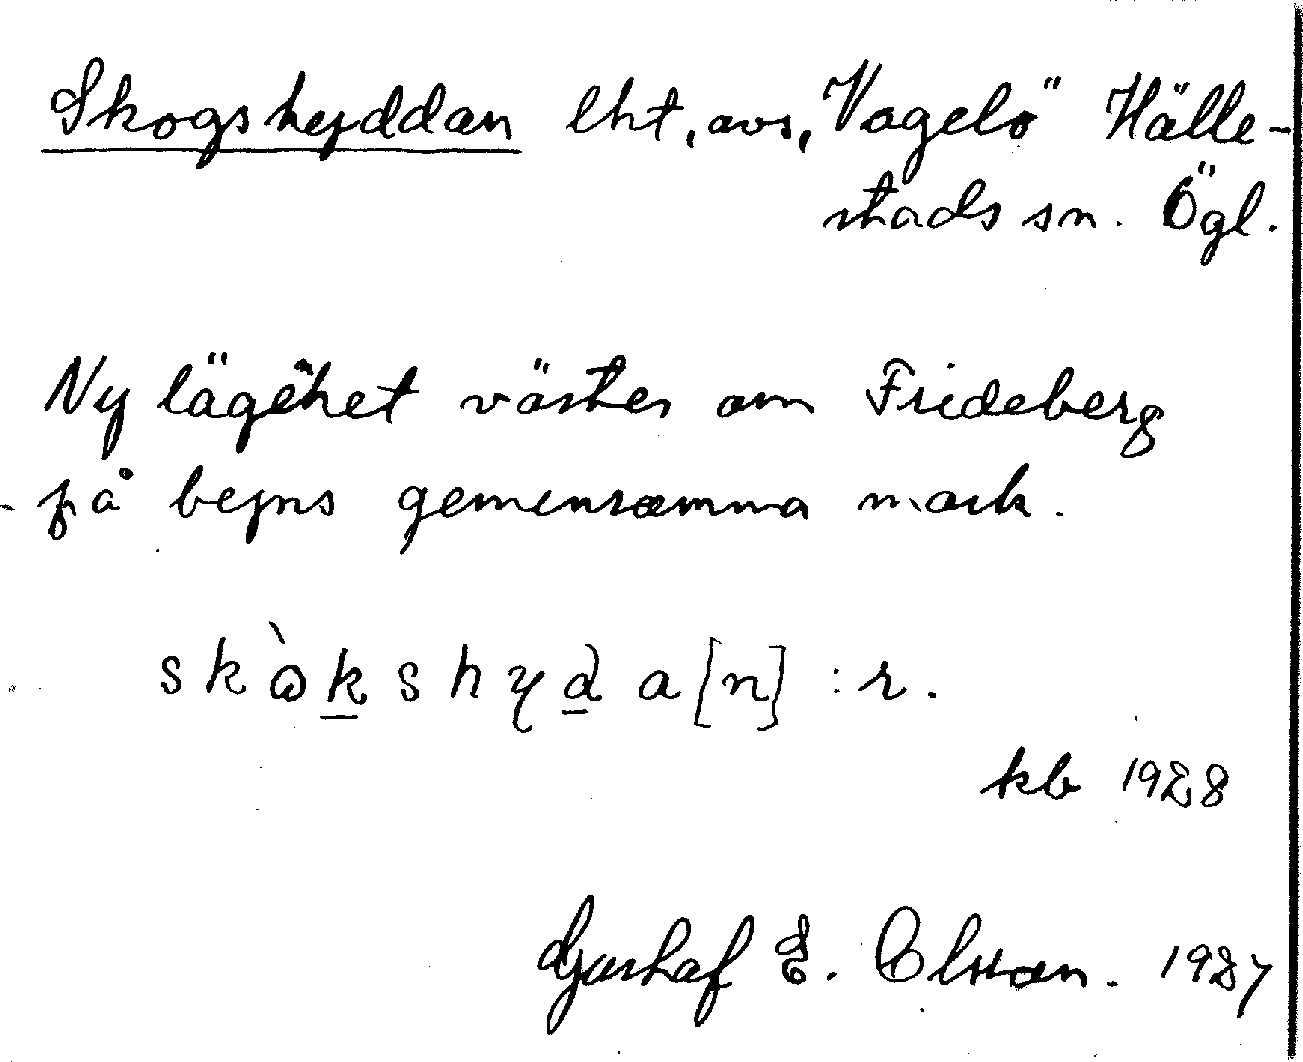 Skogshyddan lht, avs, Vagelö Hälle-
stads sn. Ögl.
Ny lägehet väster om Frideberg
på byns gemensamma mark.
skòkshyda[n] :r.
kb 1928
Gustaf E. Olsson. 1927